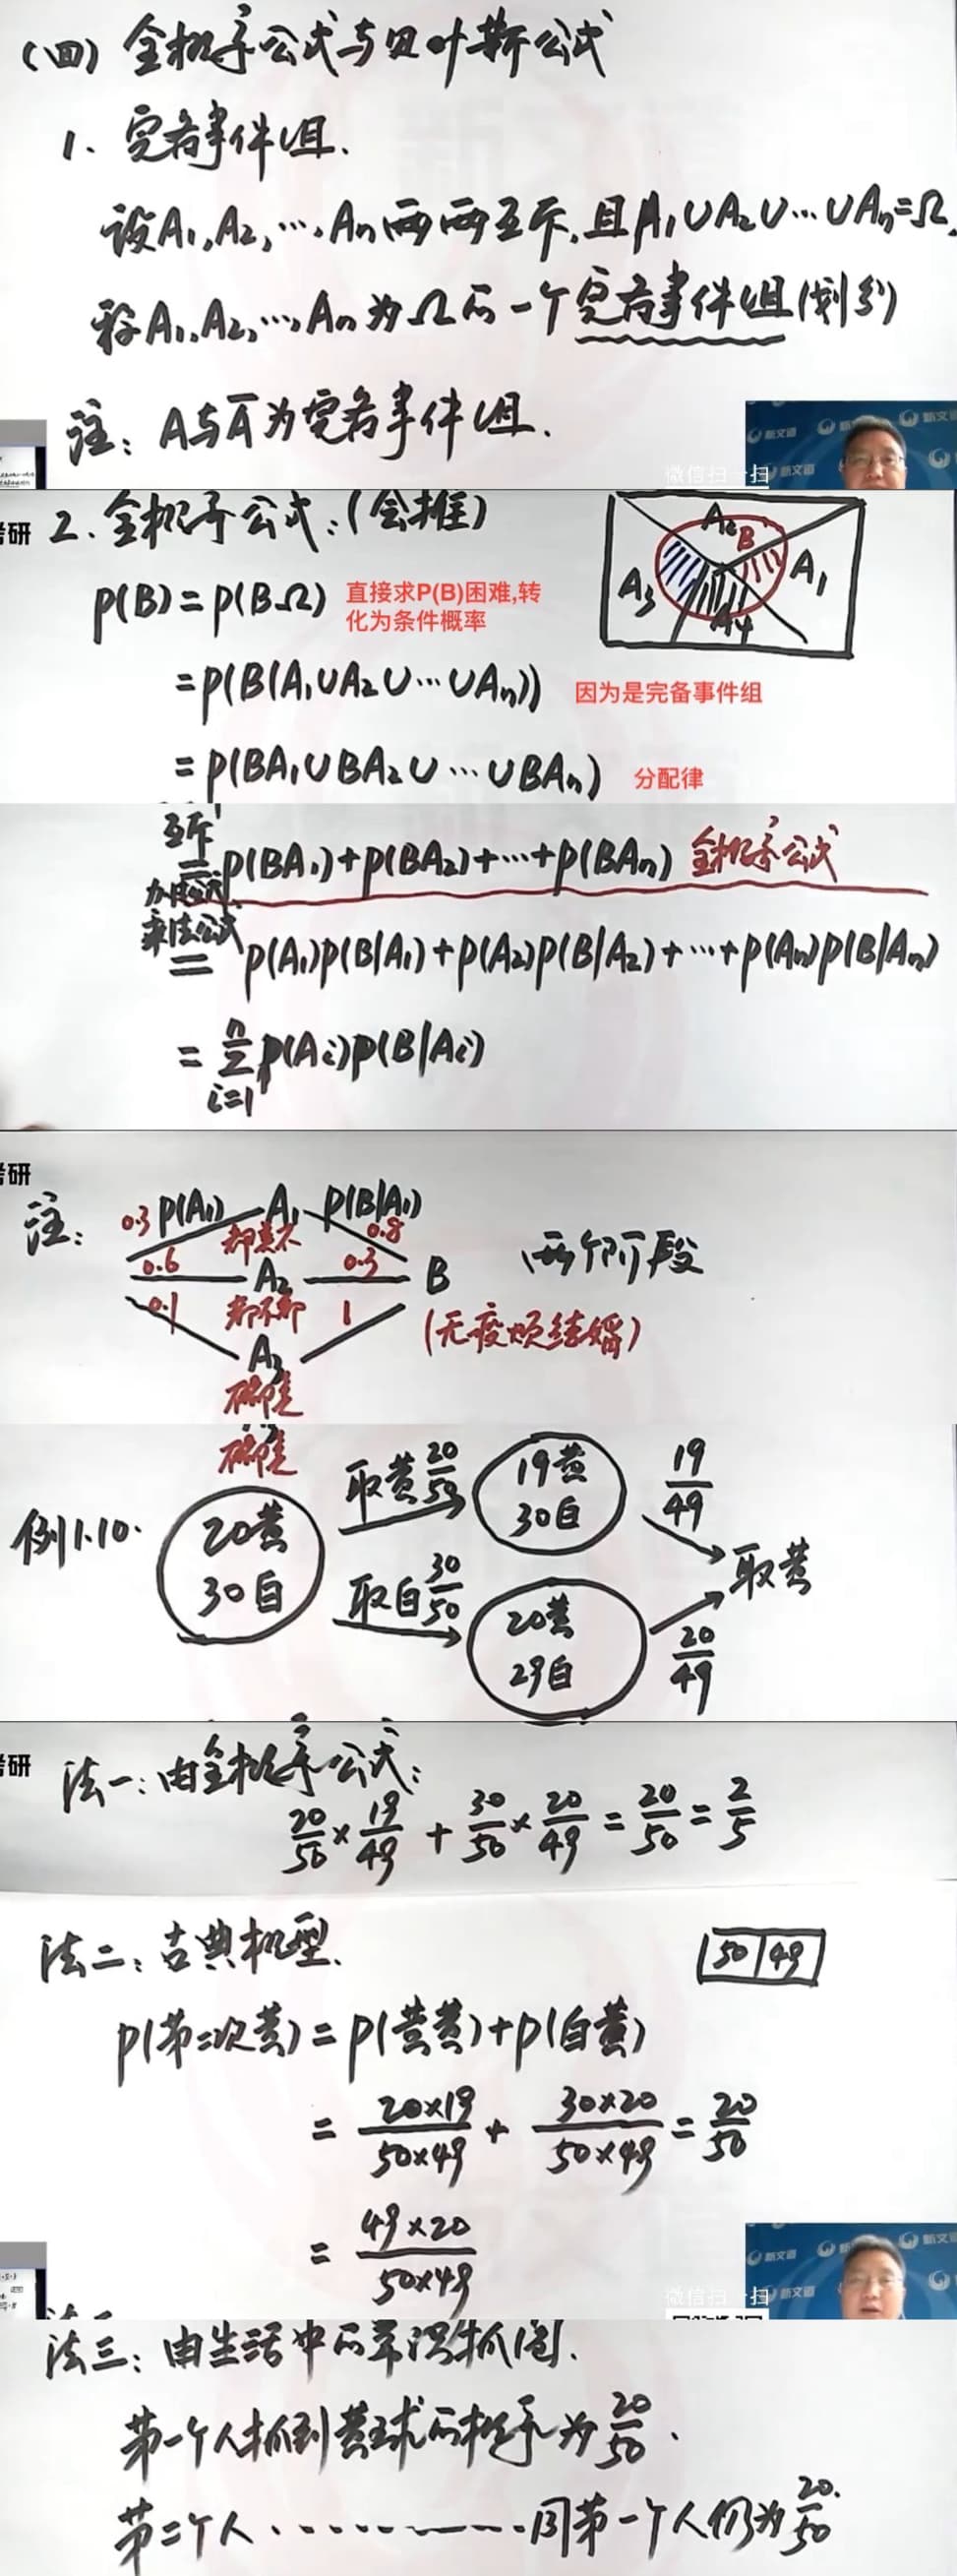 (四) 全概率公式与贝叶斯公式
1. 完备事件组.
设A₁,A₂,…,Aₙ两两互斥,且A₁∪A₂∪…∪Aₙ=Ω,
称A₁,A₂,…,Aₙ为Ω的一个完备事件组(划分)
注: A与Ā为完备事件组.
新文道
新文道
新文道
微信扫一扫
考研
2. 全概率公式:(会推)
A₂
B
A₁
A₃
A₄
P(B)=P(BΩ)
直接求P(B)困难,转
化为条件概率
=P(B(A₁∪A₂∪…∪Aₙ))
因为是完备事件组
=P(BA₁∪BA₂∪…∪BAₙ)
分配律
互斥
= P(BA₁)+P(BA₂)+…+P(BAₙ) 全概率公式
加法公式
乘法公式
= P(A₁)P(B|A₁)+P(A₂)P(B|A₂)+…+P(Aₙ)P(B|Aₙ)
= Σ P(Aᵢ)P(B|Aᵢ)
n
i=1
考研
注:
0.3 P(A₁) A₁ P(B|A₁) 0.8
0.6 A₂ 0.3 B
两个阶段
0.1 1
A₃
(无疫烦结婚)
例1.10.
20黄
30白
取黄 20/50
19黄
30白
19/49
取黄
取白 30/50
20黄
29白
20/49
考研
法一: 由全概率公式:
20/50 × 19/49 + 30/50 × 20/49 = 20/50 = 2/5
法二: 古典概型.
50|49
P(第二次黄)=P(黄黄)+P(白黄)
= 20×19/50×49 + 30×20/50×49 = 20/50
= 49×20/50×49
新文道
新文道
新文道
微信扫一扫
法三: 由生活中的常识抓阄.
第一个人抓到黄球的概率为 20/50.
第二个人…………同第一个人仍为 20/50.